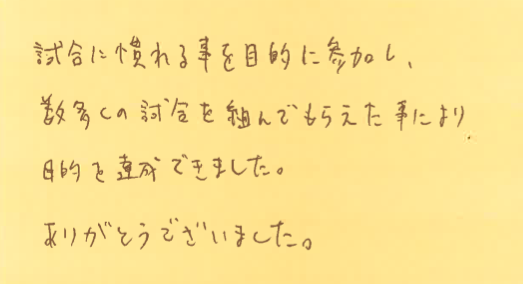 試合に慣れる事を目的に参加し、
数多くの試合を組んでもらえた事により
目的を達成できました。
ありがとうございました。